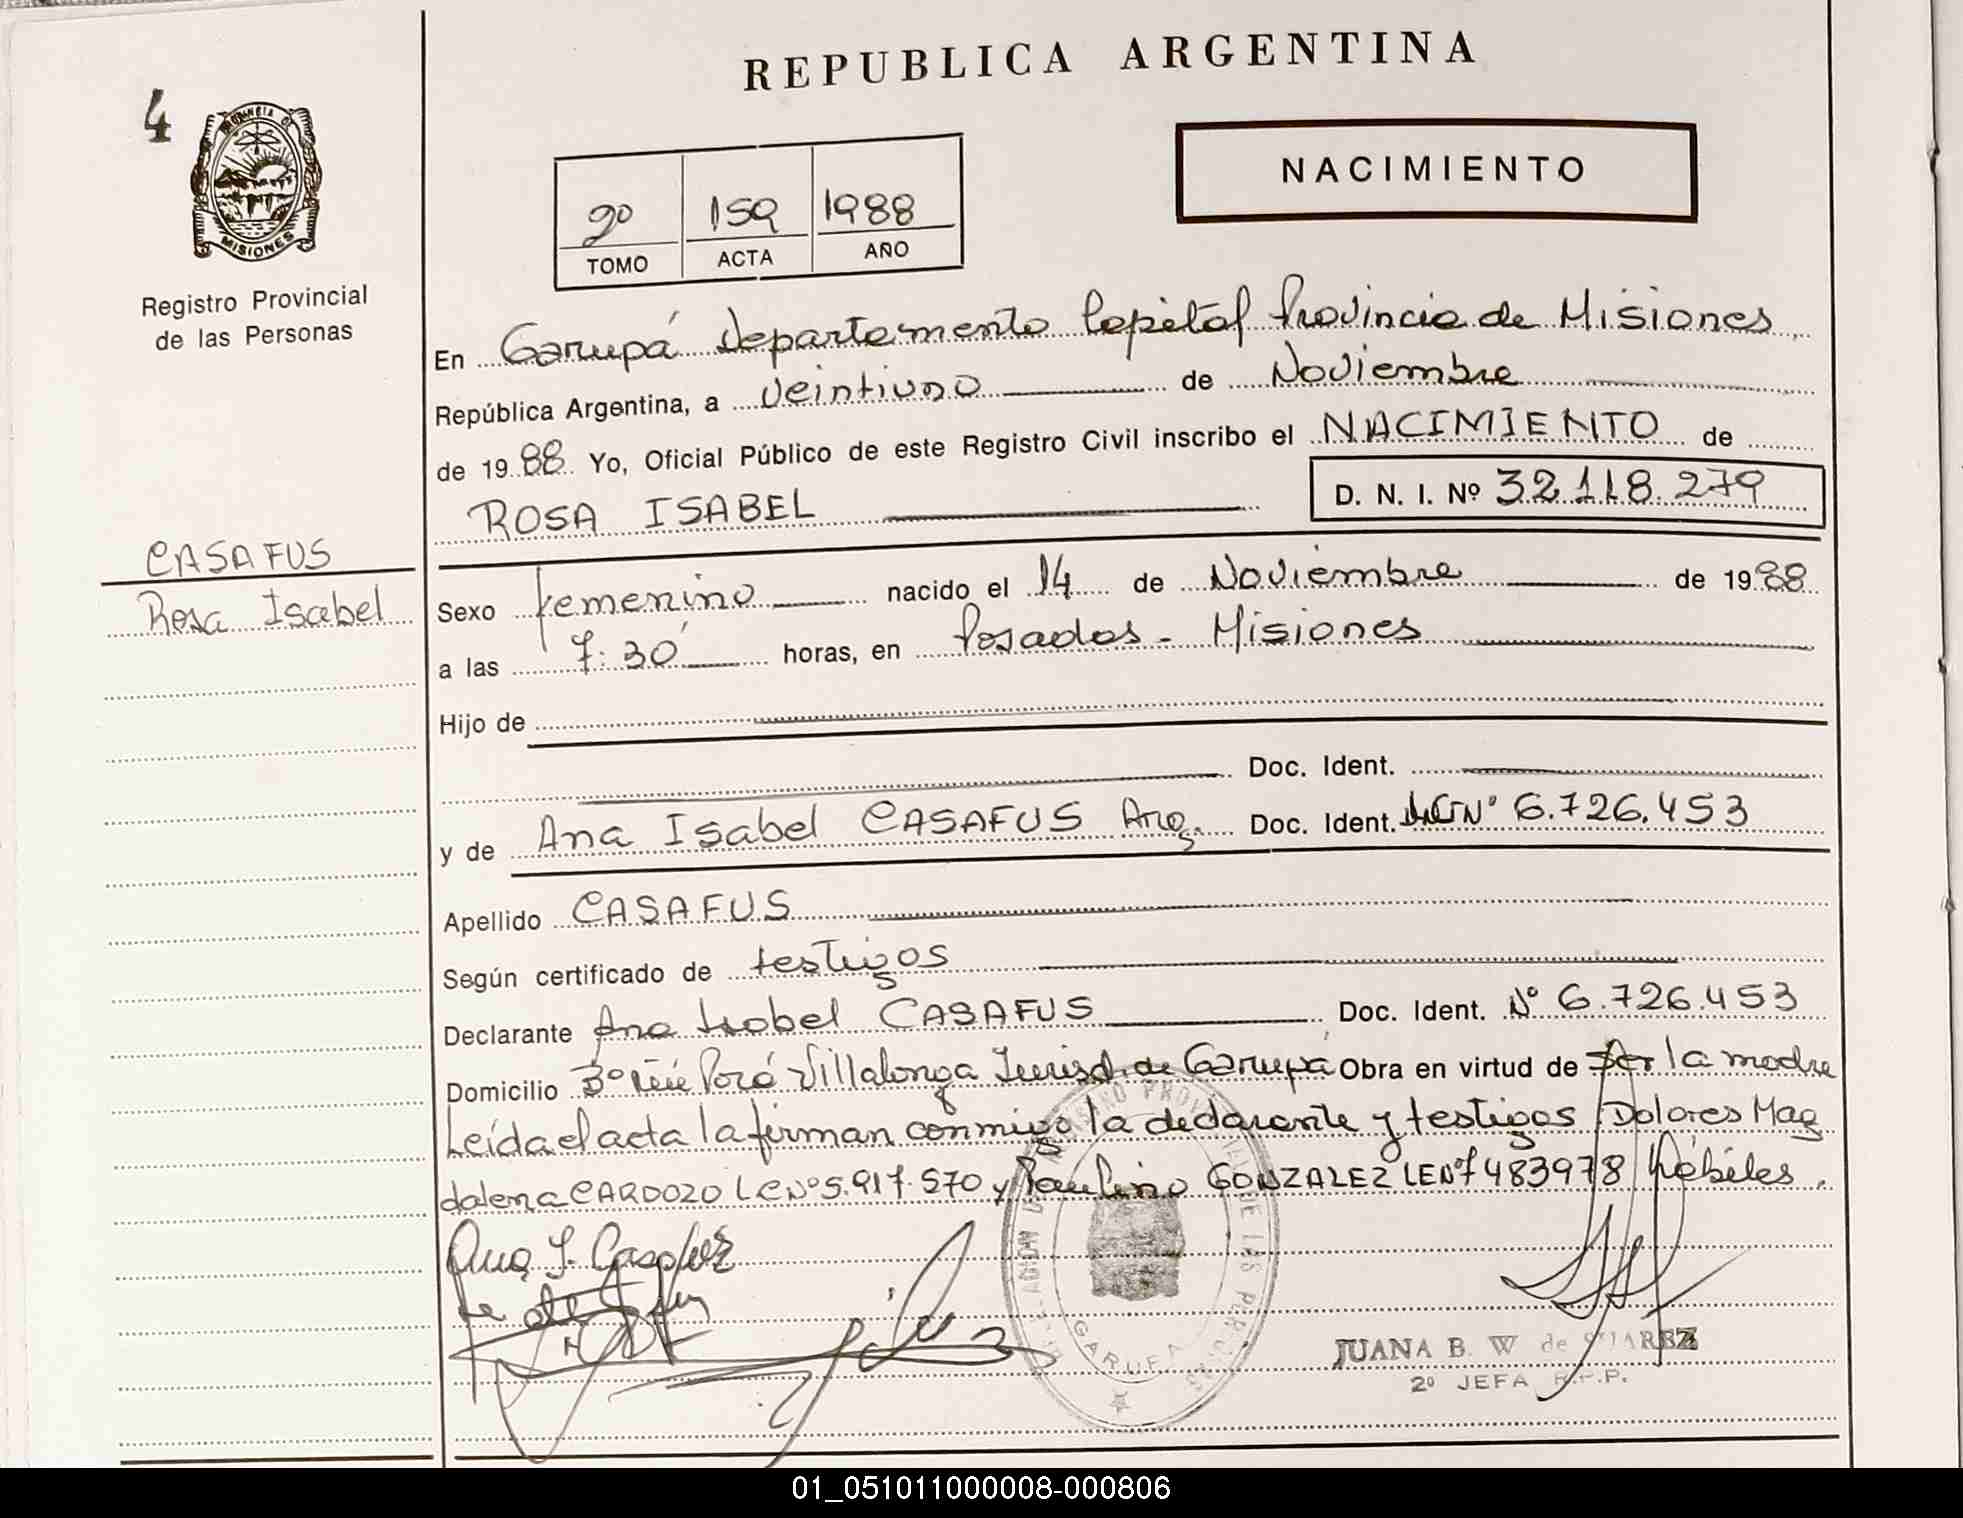 REPUBLICA ARGENTINA
4
PROVINCIA DE
MISIONES
NACIMIENTO
2º 159 1988
TOMO ACTA AÑO
Registro Provincial
de las Personas
En Garupá departamento Capital Provincia de Misiones
República Argentina, a veintiuno de Noviembre
de 1988 Yo, Oficial Público de este Registro Civil inscribo el NACIMIENTO de
ROSA ISABEL D. N. I. Nº 32.118.279
CASAFUS
Rosa Isabel
Sexo femenino nacido el 14 de Noviembre de 1988
a las 7:30 horas, en Posadas - Misiones
Hijo de
Doc. Ident.
y de Ana Isabel CASAFUS Arg. Doc. Ident. Nº 6.726.453
Apellido CASAFUS
Según certificado de testigos
Declarante Ana Isabel CASAFUS Doc. Ident. Nº 6.726.453
Domicilio Bº Villalonga Jurisd. de Garupá Obra en virtud de ser la madre
Leída el acta la firman conmigo la declarante y testigos Dolores Mag
dalena CARDOZO LC Nº 5.917.570 y Paulino GONZALEZ LE Nº 7483978 hábiles.
GARUPA
JUANA B. W. de SUAREZ
2º JEFA R.P.P.
01_051011000008-000806